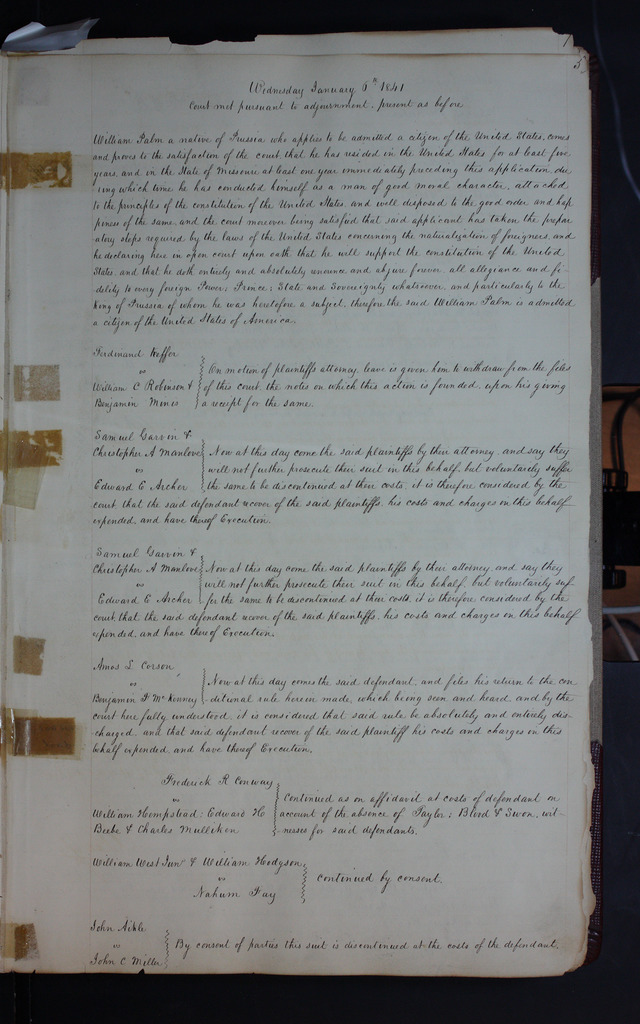 5
Wednesday January 6th 1841
Court met pursuant to adjournment, present as before
William Palm a native of Prussia who applies to be admitted a citizen of the United States, comes
and proves to the satisfaction of the court that he has resided in the United States for at least five
years, and in the State of Missouri at least one year immediately preceding this application, du
ring which time he has conducted himself as a man of good moral character, attached
to the principles of the constitution of the United States, and well disposed to the good order and hap
piness of the same, and the court moreover being satisfied that said applicant has taken the prepar
atory steps required by the laws of the United States concerning the naturalization of foreigners, and
he declaring here in open court upon oath that he will support the constitution of the United
States, and that he doth entirely and absolutely renounce and abjure forever all allegiance and fi-
delity to every foreign Power, Prince, State and Sovereignty whatsoever, and particularly to the
King of Prussia of whom he was heretofore a subject, therefore the said William Palm is admitted
a citizen of the United States of America.
Ferdinand
vs
William C Robinson &
Benjamin Miner
On motion of plaintiffs attorney leave is given him to withdraw from the files
of this court, the notes on which this action is founded, upon his giving
a receipt for the same.
Samuel Garvin &
Christopher A Manlove
vs
Edward E Archer
Now at this day come the said plaintiffs by their attorney, and say they
will not further prosecute their suit in this behalf, but voluntarily suffer
the same to be discontinued at their costs, it is therefore considered by the
court that the said defendant recover of the said plaintiffs, his costs and charges on this behalf
expended, and have thereof Execution.
Samuel Garvin &
Christopher A Manlove
vs
Edward E Archer
Now at this day come the said plaintiffs by their attorney, and say they
will not further prosecute their suit in this behalf, but voluntarily suf-
fer the same to be discontinued at their costs, it is therefore considered by the
court, that the said defendant recover of the said plaintiffs, his costs and charges on this behalf
expended, and have thereof Execution.
Amos L Corson
vs
Benjamin F McKenney
Now at this day comes the said defendant, and files his return to the con
ditional rule herein made, which being seen and heard, and by the
court here fully understood, it is considered that said rule be absolutely and entirely dis-
charged, and that said defendant recover of the said plaintiff his costs and charges in this
behalf expended, and have thereof Execution.
Frederick R Conway
vs
William Hempstead, Edward H
Beebe & Charles Mulliken
Continued as on affidavit at costs of defendant on
account of the absence of Taylor, Blood & Swon, wit-
nesses for said defendants.
William West Junr & William Hodgson
vs
Nahum Fay
Continued by consent.
John Aikle
vs
John C Miller
By consent of parties this suit is discontinued at the costs of the defendant.